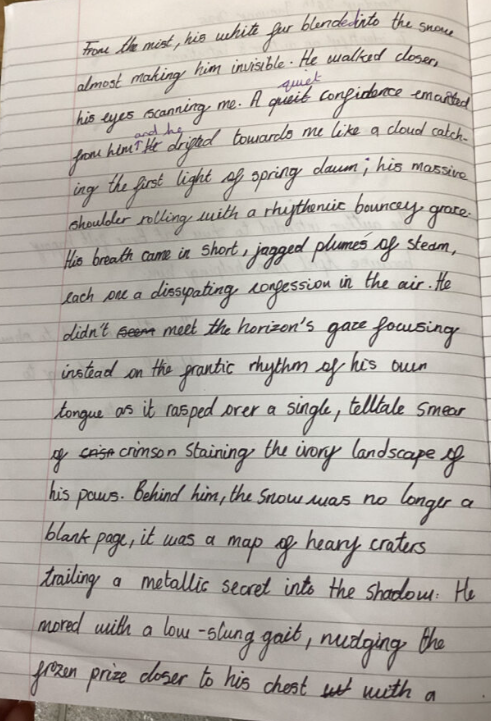 From the mist, his white fur blended into the snow
almost making him invisible. He walked closer,
his eyes scanning me. A quiet confidence emanted
from him and he drifted towards me like a cloud catch-
ing the first light of spring dawn; his massive
shoulder rolling with a rhythemic bouncey grace.
His breath came in short, jagged plumes of steam,
each one a dissypating confession in the air. He
didn't meet the horizon's gaze focusing
instead on the frantic rhythm of his own
tongue as it rasped over a single, telltale smear
of crimson staining the ivory landscape of
his paws. Behind him, the snow was no longer a
blank page, it was a map of heavy craters
trailing a metallic secret into the shadow. He
moved with a low-slung gait, nudging the
frozen prize closer to his chest with a